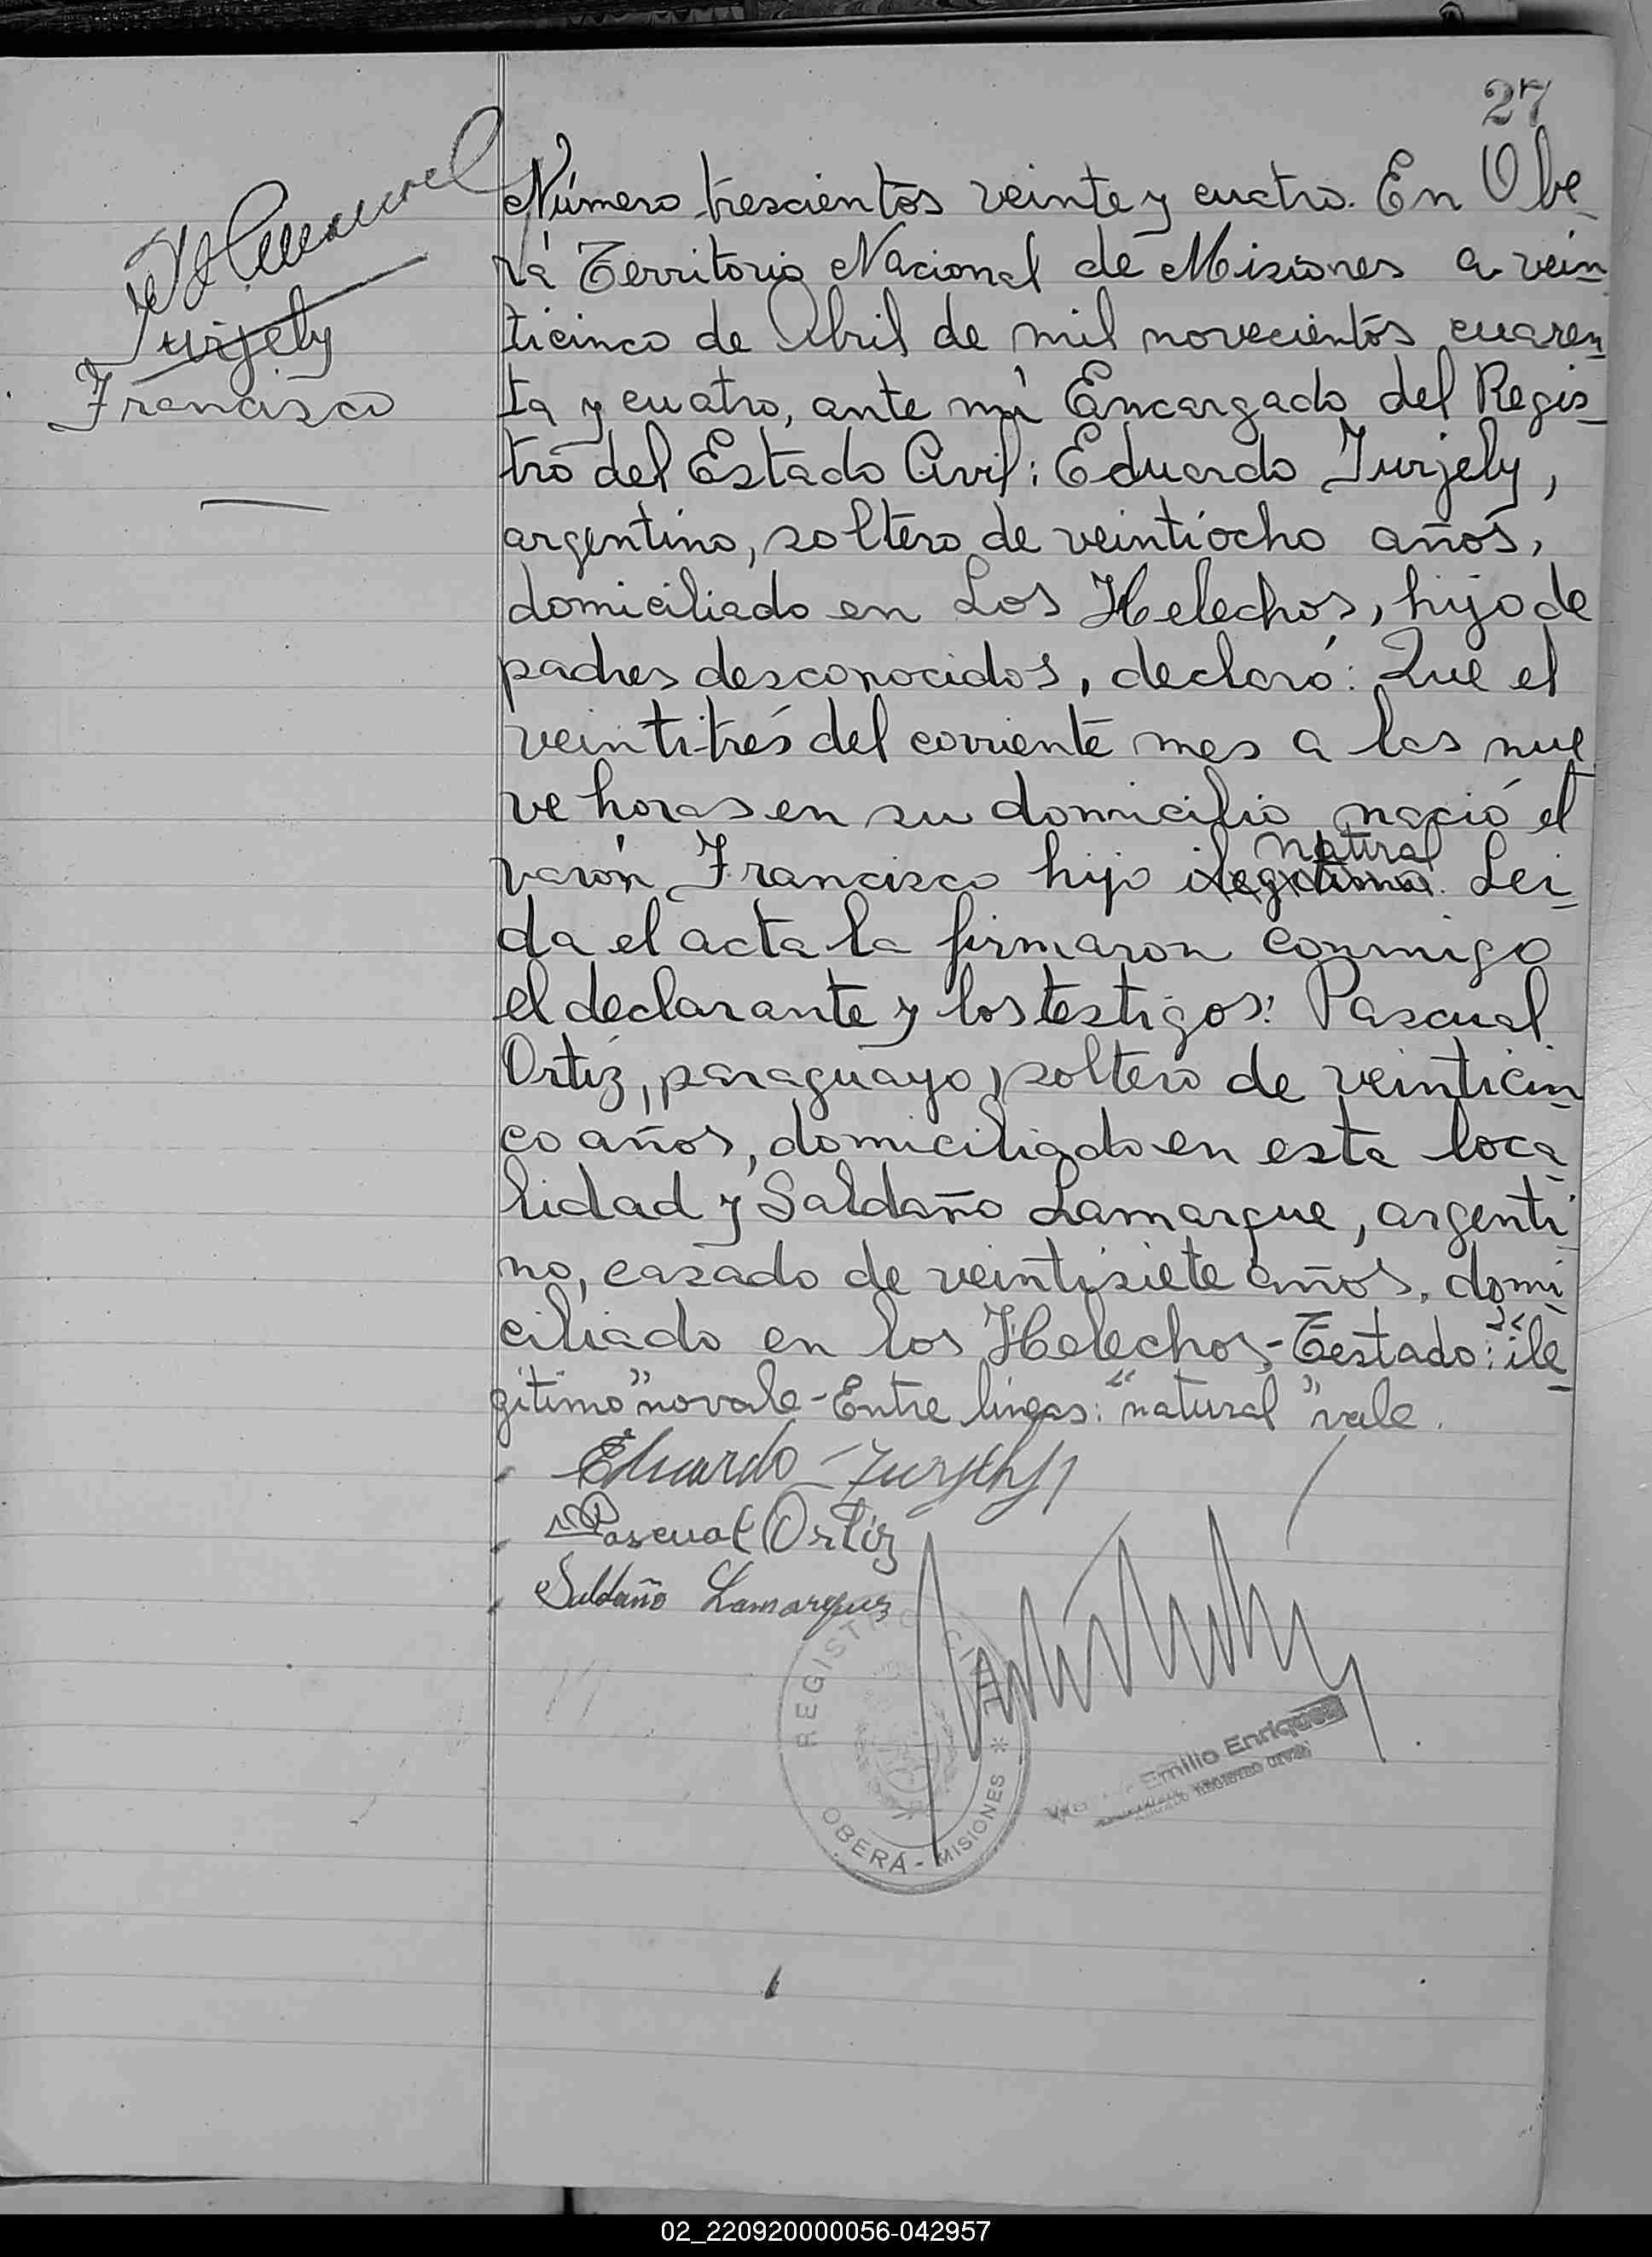 27
Jurjely
Francisco
Número trescientos veinte y cuatro. En Obe-
rá Territorio Nacional de Misiones a vein-
ticinco de Abril de mil novecientos cuaren-
ta y cuatro, ante mí Encargado del Regis-
tro del Estado Civil: Eduardo Jurjely,
argentino, soltero de veintiocho años,
domiciliado en Los Helechos, hijo de
padres desconocidos, declaró: Que el
veintitrés del corriente mes a las nue
ve horas en su domicilio nació el
natural
varón Francisco hijo ilegitimo. Lei-
da el acta la firmaron conmigo
el declarante y los testigos: Pascual
Ortiz, paraguayo, soltero de veinticin-
co años, domiciliado en esta loca-
lidad y Saldaño Lamarque, argenti-
no, casado de veintisiete años, domi-
ciliado en los Helechos,- Testado: "ile-
gitimo" no vale - Entre líneas: "natural" vale.
Eduardo Jurjely
Pascual Ortiz
Saldaño Lamarque
REGISTRO CIVIL
OBERÁ - MISIONES *
Emilio Enriquez
REGISTRO CIVIL
02_220920000056-042957